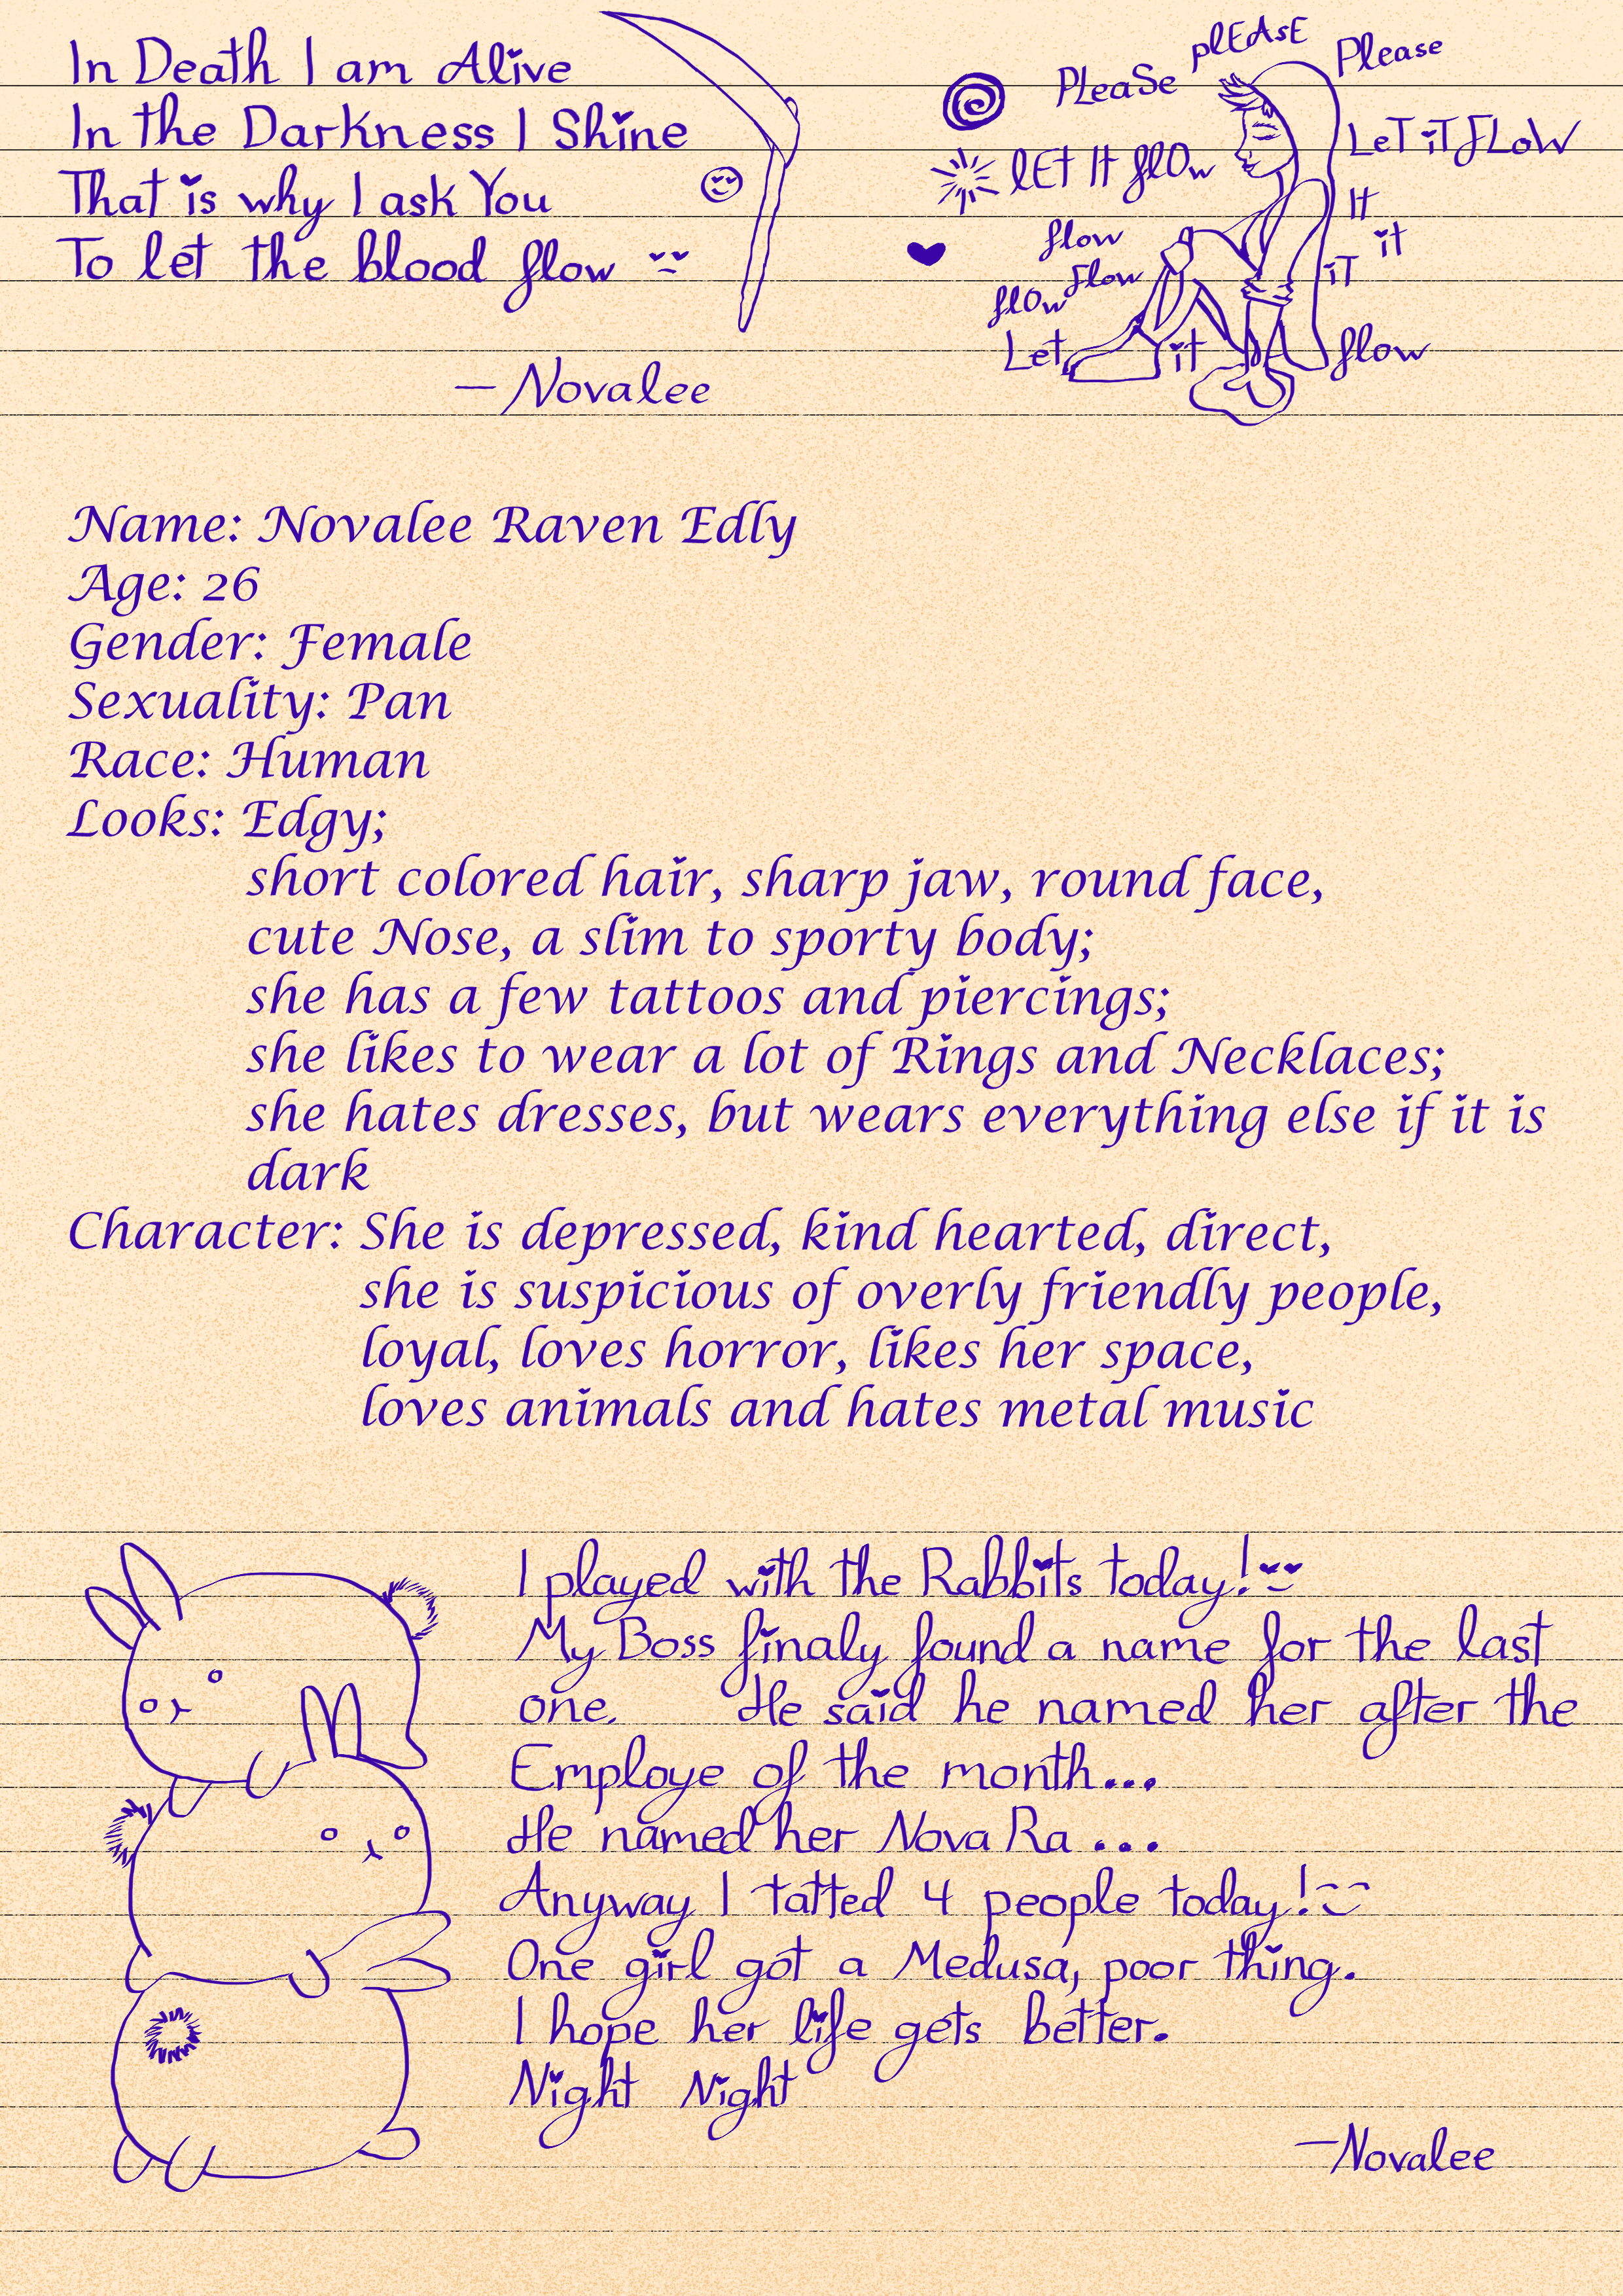 In Death I am Alive
In the Darkness I Shine
That is why I ask You
To let the blood flow
— Novalee
PLeaSe plEAsE Please
lET It flOw LeT iT FLoW
It
flow it
Flow iT
flOw
Let it flow
Name: Novalee Raven Edly
Age: 26
Gender: Female
Sexuality: Pan
Race: Human
Looks: Edgy;
short colored hair, sharp jaw, round face,
cute Nose, a slim to sporty body;
she has a few tattoos and piercings;
she likes to wear a lot of Rings and Necklaces;
she hates dresses, but wears everything else if it is
dark
Character: She is depressed, kind hearted, direct,
she is suspicious of overly friendly people,
loyal, loves horror, likes her space,
loves animals and hates metal music
I played with the Rabbits today!
My Boss finaly found a name for the last
one. He said he named her after the
Employe of the month...
He named her Nova Ra ...
Anyway I tatted 4 people today!
One girl got a Medusa, poor thing.
I hope her life gets better.
Night Night
—Novalee